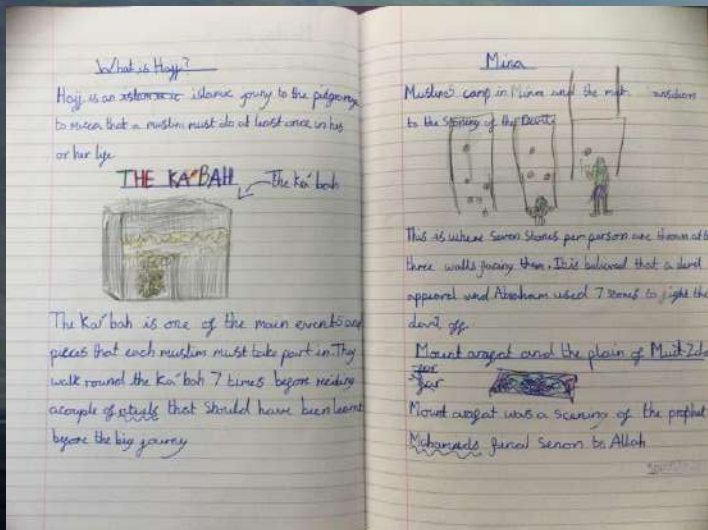 What is Hajj?
Hajj is an islamic jouny to the pilgromy
to mecca that a muslim must do at least once in his
or her life
THE KA'BAH
The Ka'bah
The Ka'bah is one of the main events and
pieces that each muslim must take part in. They
walk round the Ka'bah 7 times before reciding
a couple of rituals that should have been learnt
before the big journey
Mina
Muslims camp in Mina and the
to the stoning of the Devil
This is where seven stones per person are thrown at
three walls facing them. It is believed that a devil
appeard and Abraham used 7 stones to fight the
devil off.
Mount arafat and the plain of
Mount arafat was a scening of the prophet
Mohameds final semon to Allah